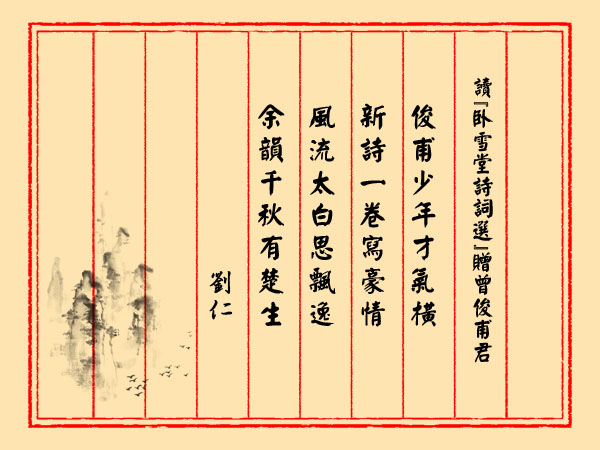 讀『卧雪堂詩詞選』贈曾俊甫君
俊甫少年才氣橫
新詩一卷寫豪情
風流太白思飄逸
余韻千秋有楚生
劉仁